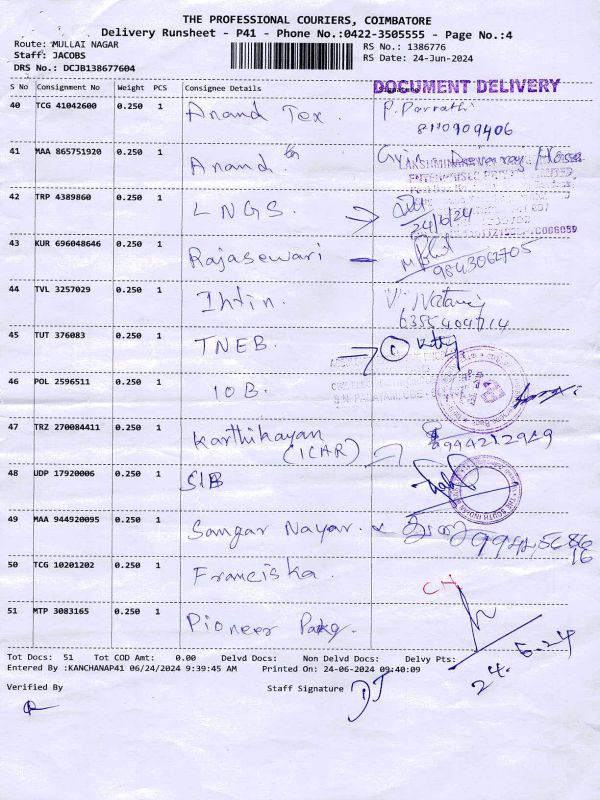 THE PROFESSIONAL COURIERS, COIMBATORE
Delivery Runsheet - P41 - Phone No.:0422-3505555 - Page No.:4
Route: MULLAI NAGAR
RS No.: 1386776
Staff: JACOBS
RS Date: 24-Jun-2024
DRS No.: DCJB138677604
S No Consignment No Weight PCS Consignee Details Signature
DOCUMENT DELIVERY
40 TCG 41042600 0.250 1 Anand Tex.
8110909406
41 MAA 865751920 0.250 1 Anand
42 TRP 4389860 0.250 1 LNGS.
24/6/24
43 KUR 696048646 0.250 1 Rajasewari
9843062705
44 TVL 3257029 0.250 1 Ihtin.
45 TUT 376083 0.250 1 TNEB.
46 POL 2596511 0.250 1 IOB.
47 TRZ 270084411 0.250 1 Karthikayan
(ICAR)
9994212949
48 UDP 17920006 0.250 1 SIB
THE SOUTH INDIAN
49 MAA 944920095 0.250 1 Sangar Nayar.
50 TCG 10201202 0.250 1 Franciska.
51 MTP 3083165 0.250 1 Pioneer Pakg.
24.6-24
Tot Docs: 51 Tot COD Amt: 0.00 Delvd Docs: Non Delvd Docs: Delvy Pts:
Entered By :KANCHANAP41 06/24/2024 9:39:45 AM Printed On: 24-06-2024 09:40:09
Verified By Staff Signature